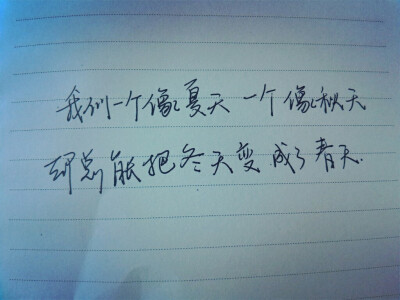 我们一个像夏天 一个像秋天
却总能把冬天变成了春天.